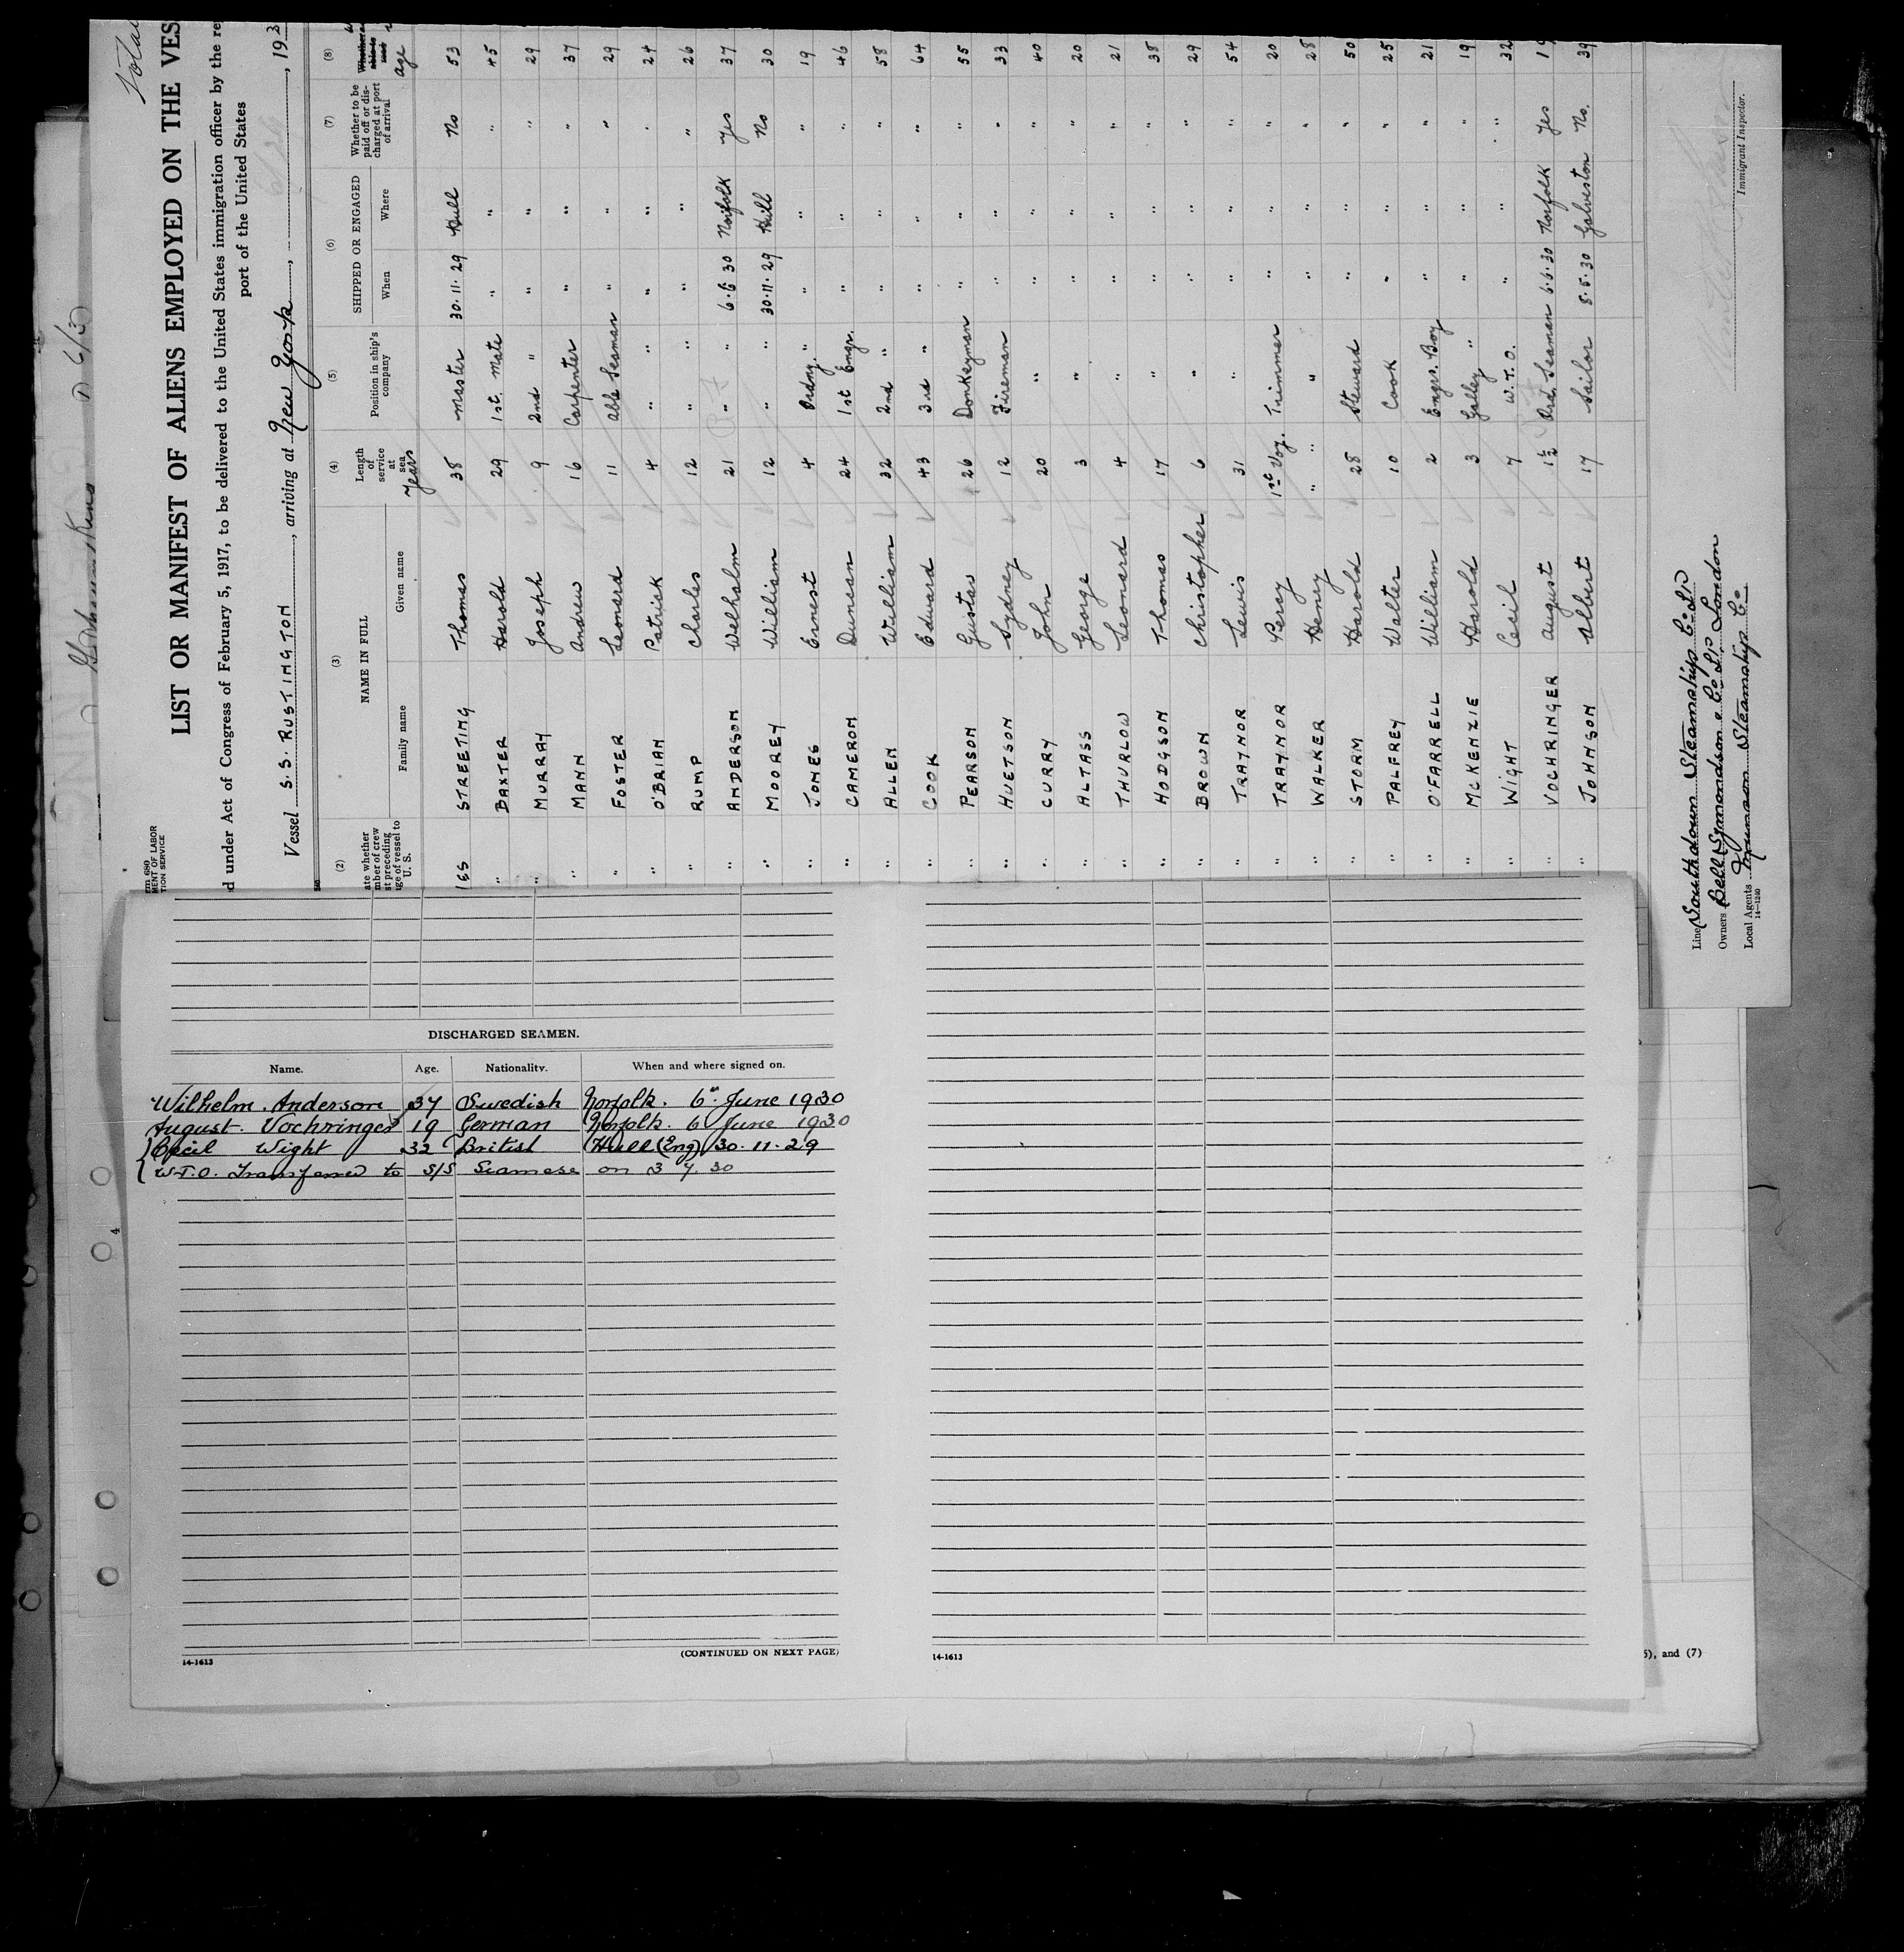 LIST OR MANIFEST OF ALIENS EMPLOYED ON THE VES
d under Act of Congress of February 5, 1917, to be delivered to the United States immigration officer by the re
port of the United States
Vessel S.S. RUSTINGTON, arriving at New York, 193
(2) (3) (4) (5) (6) (7) (8)
NAME IN FULL
SHIPPED OR ENGAGED
ate whether mber of crew st preceding ge of vessel to U. S.
Family name Given name
Length of service at sea Years
Position in ship's company
When Where
Whether to be paid off or discharged at port of arrival
age
STREETING Thomas 38 Master 30.11.29 Hull No 53
" BAXTER Harold 29 1st. Mate " " " 45
" MURRAY Joseph 9 2nd " " " " 29
" MANN Andrew 16 Carpenter " " " 37
" FOSTER Leonard 11 Able Seaman " " " 29
" O'BRIAN Patrick 4 " " " " 24
" RUMP Charles 12 " " " " 26
" ANDERSON Welhalm 21 " 6.6.30 Norfolk Yes 37
" MOOREY William 12 " 30.11.29 Hull No 30
" JONES Ernest 4 Ordny. " " " " 19
" CAMERON Duncan 24 1st Engr. " " " 46
" ALLEN William 32 2nd " " " " 58
" COOK Edward 43 3rd " " " " 64
" PEARSON Gustav 26 Donkeyman " " " 55
" HUETSON Sydney 12 Fireman " " " 33
" CURRY John 20 " " " " 40
" ALTASS George 3 " " " " 20
" THURLOW Leonard 4 " " " " 21
" HODGSON Thomas 17 " " " " 38
" BROWN Christopher 6 " " " " 29
" TRAYNOR Lewis 31 " " " " 54
" TRAYNOR Percy 1st Voy. Trimmer " " " 20
" WALKER Henry " " " " " " 28
" STORM Harold 28 Steward " " " 50
" PALFREY Walter 10 Cook " " " 25
" O'FARRELL William 2 Engrs. Boy " " " 21
" McKENZIE Harold 3 Galley " " " " 19
" WIGHT Cecil 7 W.T.O. " " " 32
" VOCHRINGER August 1½ Ord. Seaman 6.6.30 Norfolk Yes 19
" JOHNSON Albert 17 Sailor 8.5.30 Galveston No. 39
Line Southdown Steamship Co. Ltd
Owners Bell Symondson & Co. Ltd London
Local Agents Munson Steamship Co
14—1240
Immigrant Inspector.
DISCHARGED SEAMEN.
Name. Age. Nationality. When and where signed on.
Wilhelm. Anderson 37 Swedish Norfolk. 6th June 1930
August. Vochringer 19 German Norfolk. 6 June 1930
Cecil Wight 32 British Hull (Eng) 30.11.29
W.T.O. Transferred to S/S Siamese on 3 7. 30
(CONTINUED ON NEXT PAGE)
14-1613
14-1613
5), and (7)
4